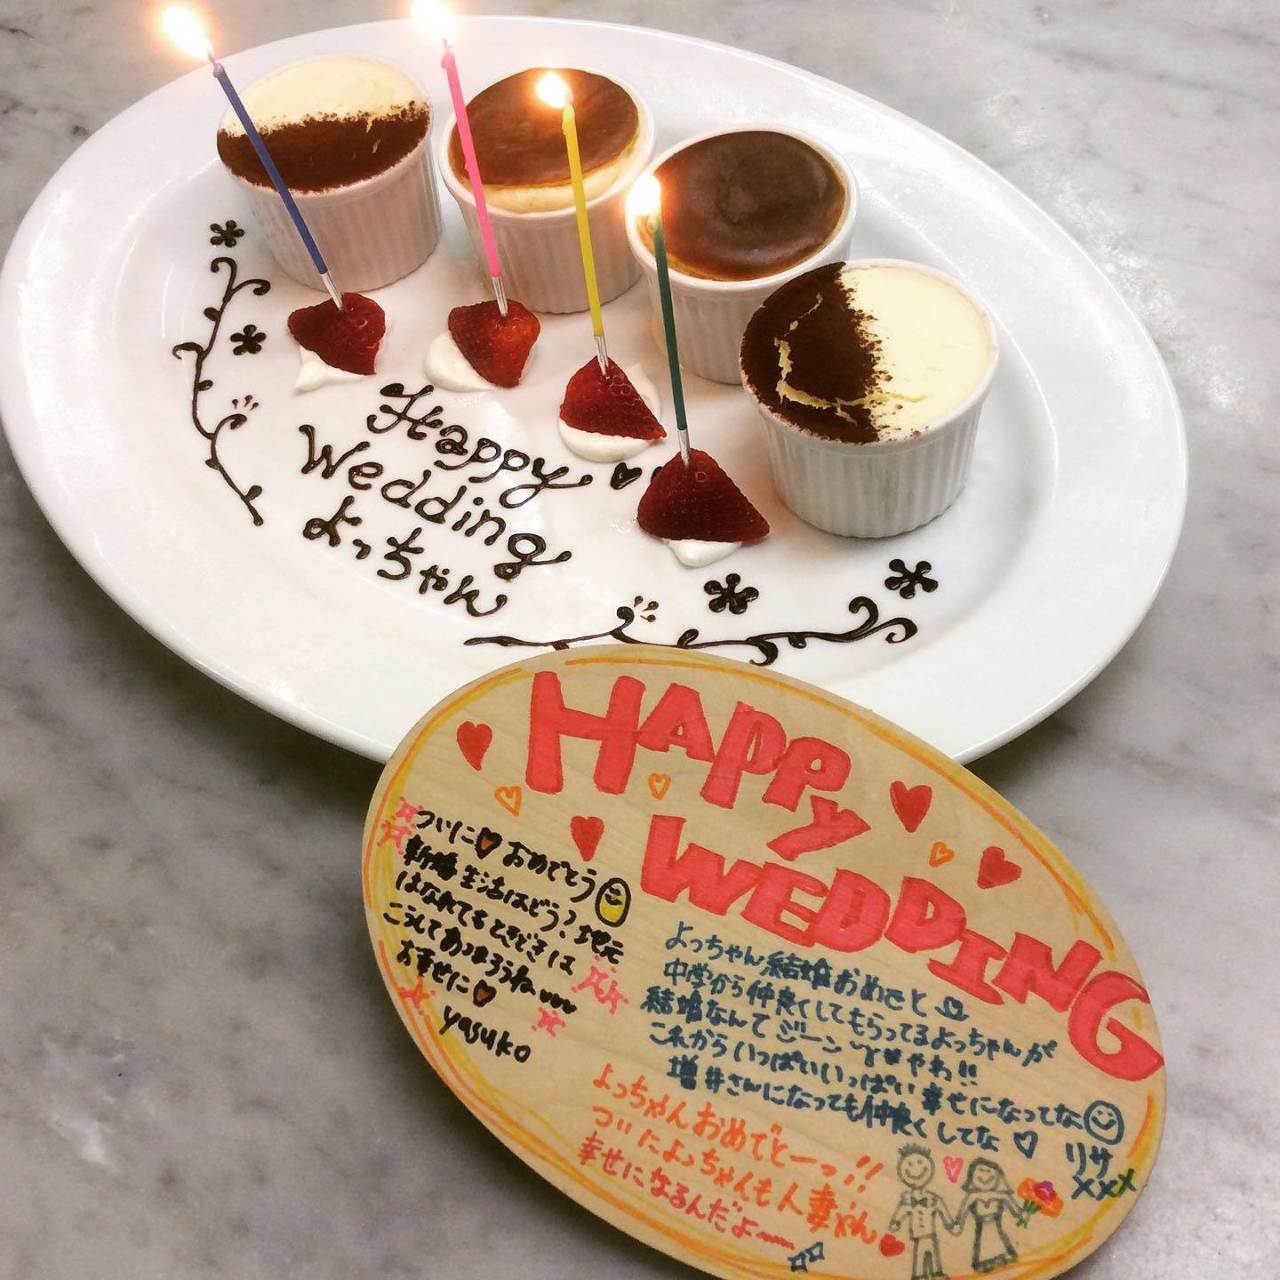 Happy
Wedding
よっちゃん
HAPPY
WEDDING
ついに おめでとう
新婚生活はどう？地元
はなれてるときどきは
こうしてあつまろうね
お幸せに
yasuko
よっちゃん結婚おめでと
中学から仲良くしてもらってるよっちゃんが
結婚なんてジーン やわ!!
これからいっぱいいっぱい幸せになってな
増井さんになっても仲良くしてな
リサ
xxx
よっちゃんおめでとーっ!!
ついによっちゃんも人妻やん
幸せになるんだよ〜